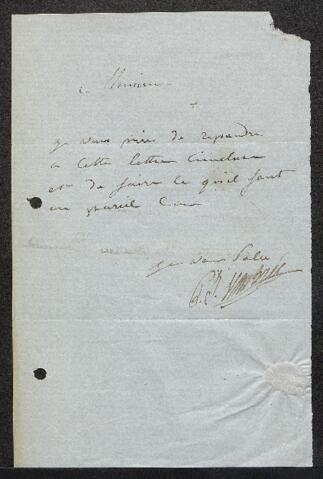 Monsieur
je vous prie de repondre
a cette lettre incluse
et de faire ce qu'il faut
en pareil cas
je vous salue